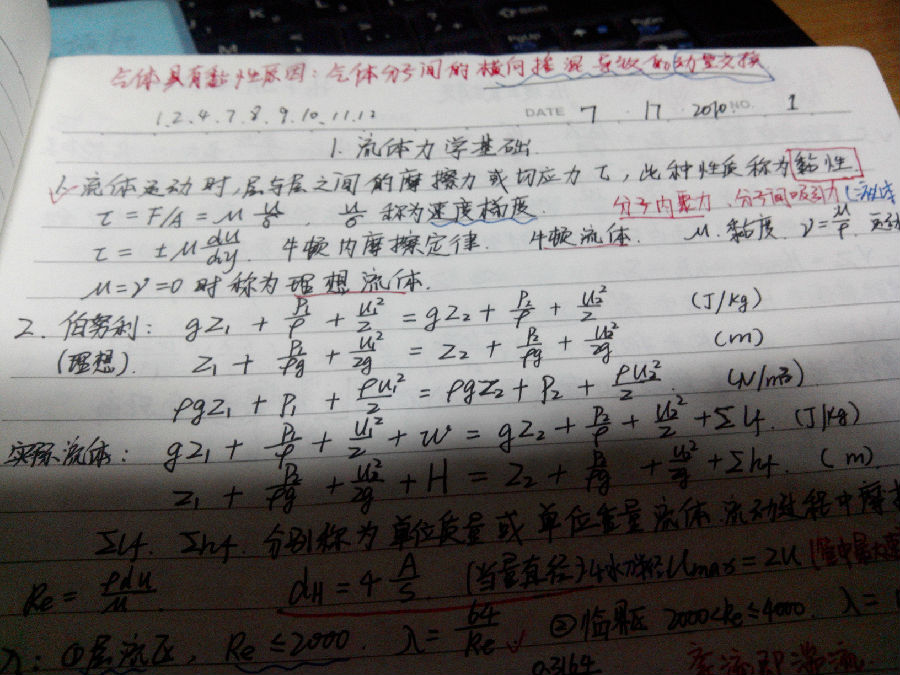 气体具有黏性原因：气体分子间的横向掺混导致的动量交换
1.2.4.7.8.9.10.11.12
DATE 7 17 2010 NO. 1
1. 流体力学基础
1. 流体运动时,层与层之间的摩擦力或切应力τ，此种性质称为黏性
τ = F/A = μ u/δ . u/δ 称为速度梯度. 分子内聚力、分子间吸引力(液体
τ = ± μ du/dy . 牛顿内摩擦定律. 牛顿流体. μ. 黏度. ν = μ/ρ. 运动
μ=ν=0 时称为理想流体.
2. 伯努利: gz₁ + P₁/ρ + u₁²/2 = gz₂ + P₂/ρ + u₂²/2 (J/kg)
(理想). z₁ + P₂/ρg + u₁²/2g = z₂ + P₂/ρg + u₂²/2g (m)
ρgz₁ + P₁ + ρu₁²/2 = ρgz₂ + P₂ + ρu₂²/2 (N/m²)
实际流体: gz₁ + P₁/ρ + u₁²/2 + w = gz₂ + P₂/ρ + u₂²/2 + Σlf. (J/kg)
z₁ + P₂/ρg + u₂²/2g + H = z₂ + P₂/ρg + u₂²/2g + Σhf. (m)
Σlf. Σhf. 分别称为单位质量或单位重量流体流动过程中摩擦
Re = ρdu/μ d_H = 4 A/S . (当量直径) 4水力半径 Umax = 2u (管中最大
λ: ①层流区, Re ≤ 2000. λ = 64/Re ②临界区 2000<Re≤4000. λ =
0.3164 紊流即湍流.